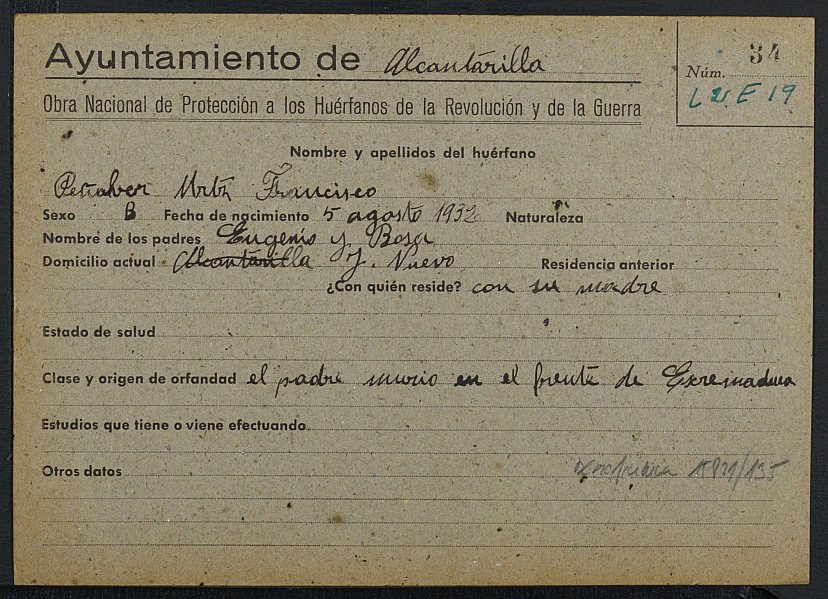 Ayuntamiento de Alcantarilla
Núm. 34
L 2 E 19
Obra Nacional de Protección a los Huérfanos de la Revolución y de la Guerra
Nombre y apellidos del huérfano
Peñalver Francisco
Sexo B Fecha de nacimiento 5 agosto 1932 Naturaleza
Nombre de los padres Eugenio y Rosa
Domicilio actual Alcantarilla J. Nuevo Residencia anterior
¿Con quién reside? con su madre
Estado de salud
Clase y origen de orfandad el padre murio en el frente de Exremadura
Estudios que tiene o viene efectuando
Otros datos